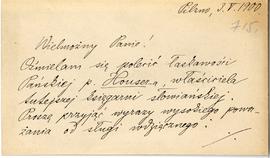 Pilzno, 3.V.1900
715.
Wielmożny Panie!
Ośmielam się polecić łaskawości
Pańskiej p. Housera, właściciela
tutejszej księgarni słowiańskiej.
Proszę przyjąć wyrazy wysokiego powa-
żania od sługi wdzięcznego: